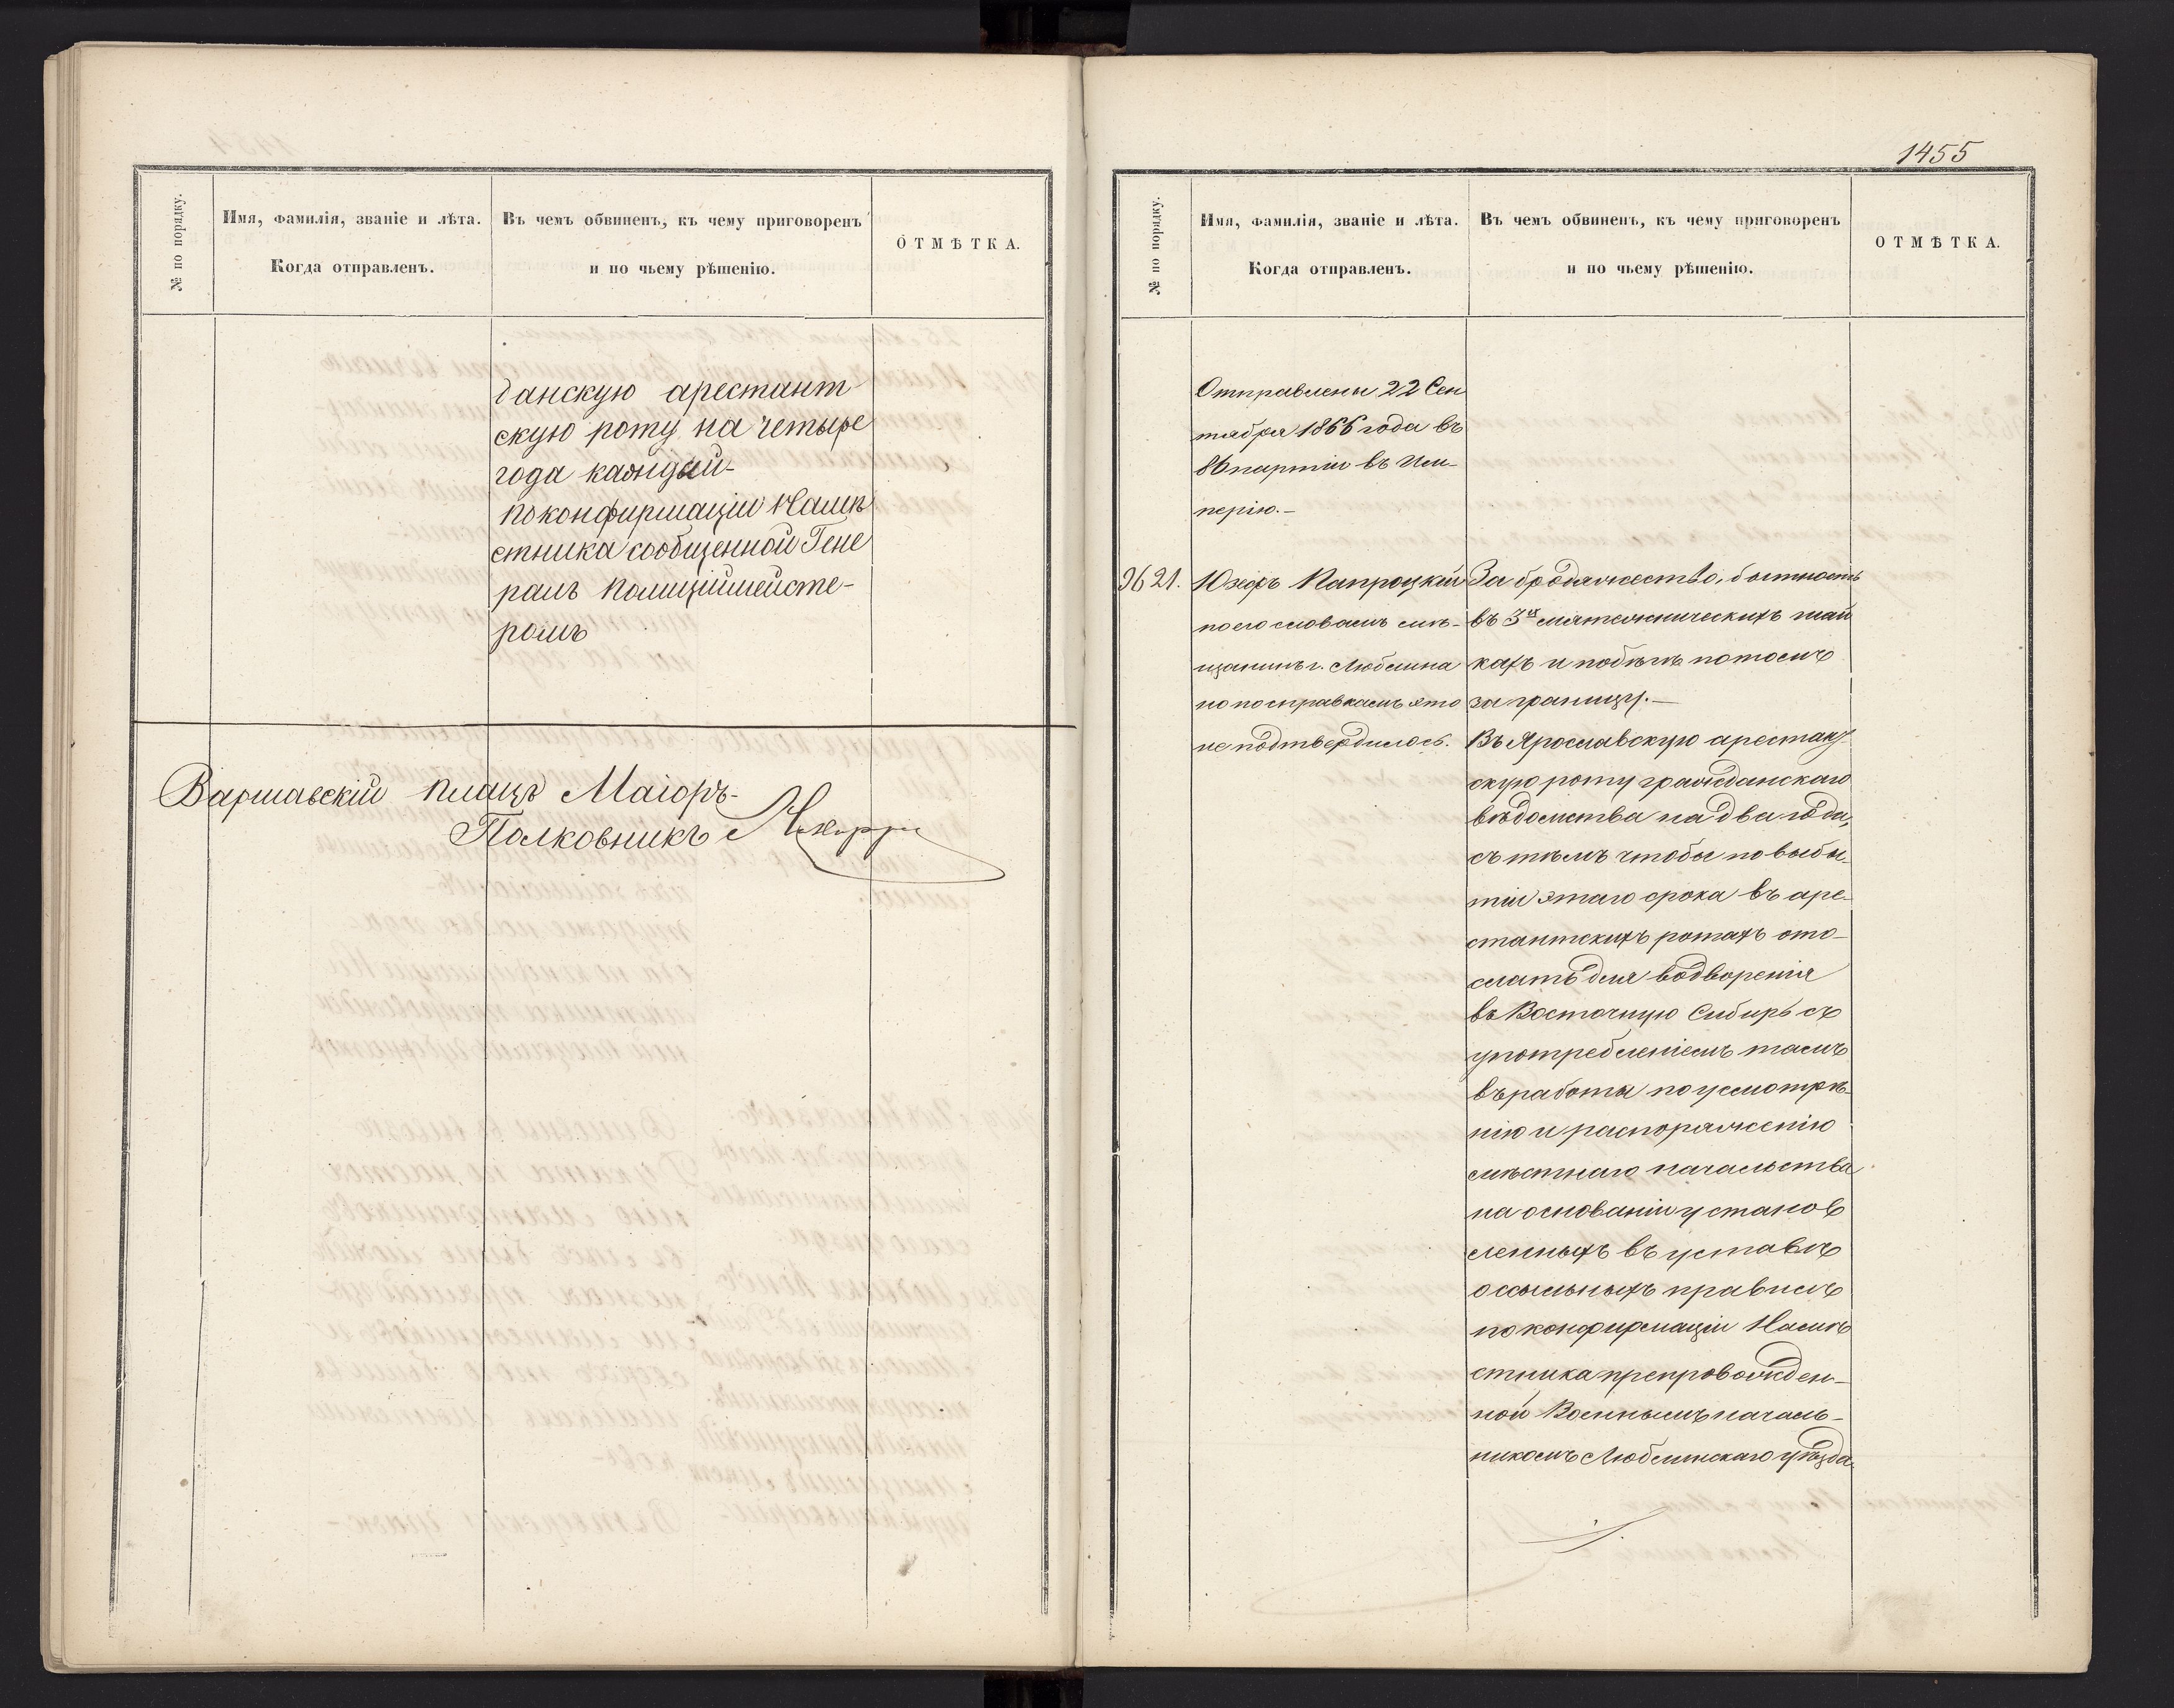 № по порядку.
Имя, фамилія, званіе и лѣта.
Когда отправленъ.
Въ чемъ обвиненъ, къ чему приговоренъ
и по чьему рѣшенію.
ОТМѢТКА.
данскую арестант
скую роту на четыре
года каждый-
По конфирмаціи Намѣ
стника сообщенной Гене
ралъ Полиціймейсте-
ромъ
Варшавскій Плацъ Маіоръ-
Полковникъ
1455
№ по порядку.
Имя, фамилія, званіе и лѣта.
Когда отправленъ.
Въ чемъ обвиненъ, къ чему приговоренъ
и по чьему рѣшенію.
ОТМѢТКА.
Отправлены 22 Сен
тября 1866 года въ
86 партіи въ Им-
перію.-
9621.
Юзефъ Папроцкій
по его словамъ мѣ-
щанинъ г. Люблина
но по справкамъ это
не подтвердилось.
За бродяжество, бытность
въ 3х мятежническихъ шай
кахъ и побѣгъ потомъ
за границу.-
Въ Ярославскую арестант
скую роту гражданскаго
вѣдомства на два года,
съ тѣмъ чтобы по выбы-
тіи этаго срока въ аре-
стантскихъ ротахъ ото-
слать для водворенія
въ Восточную Сибирь съ
употребленіемъ тамъ
въ работы по усмотрѣ-
нію и распоряженію
мѣстнаго начальства
на основаніи установ
ленныхъ въ уставѣ
о ссыльныхъ правилъ
по конфирмаціи Намѣ
стника препровожден-
ной Военнымъ началь-
никомъ Люблинскаго уѣзда